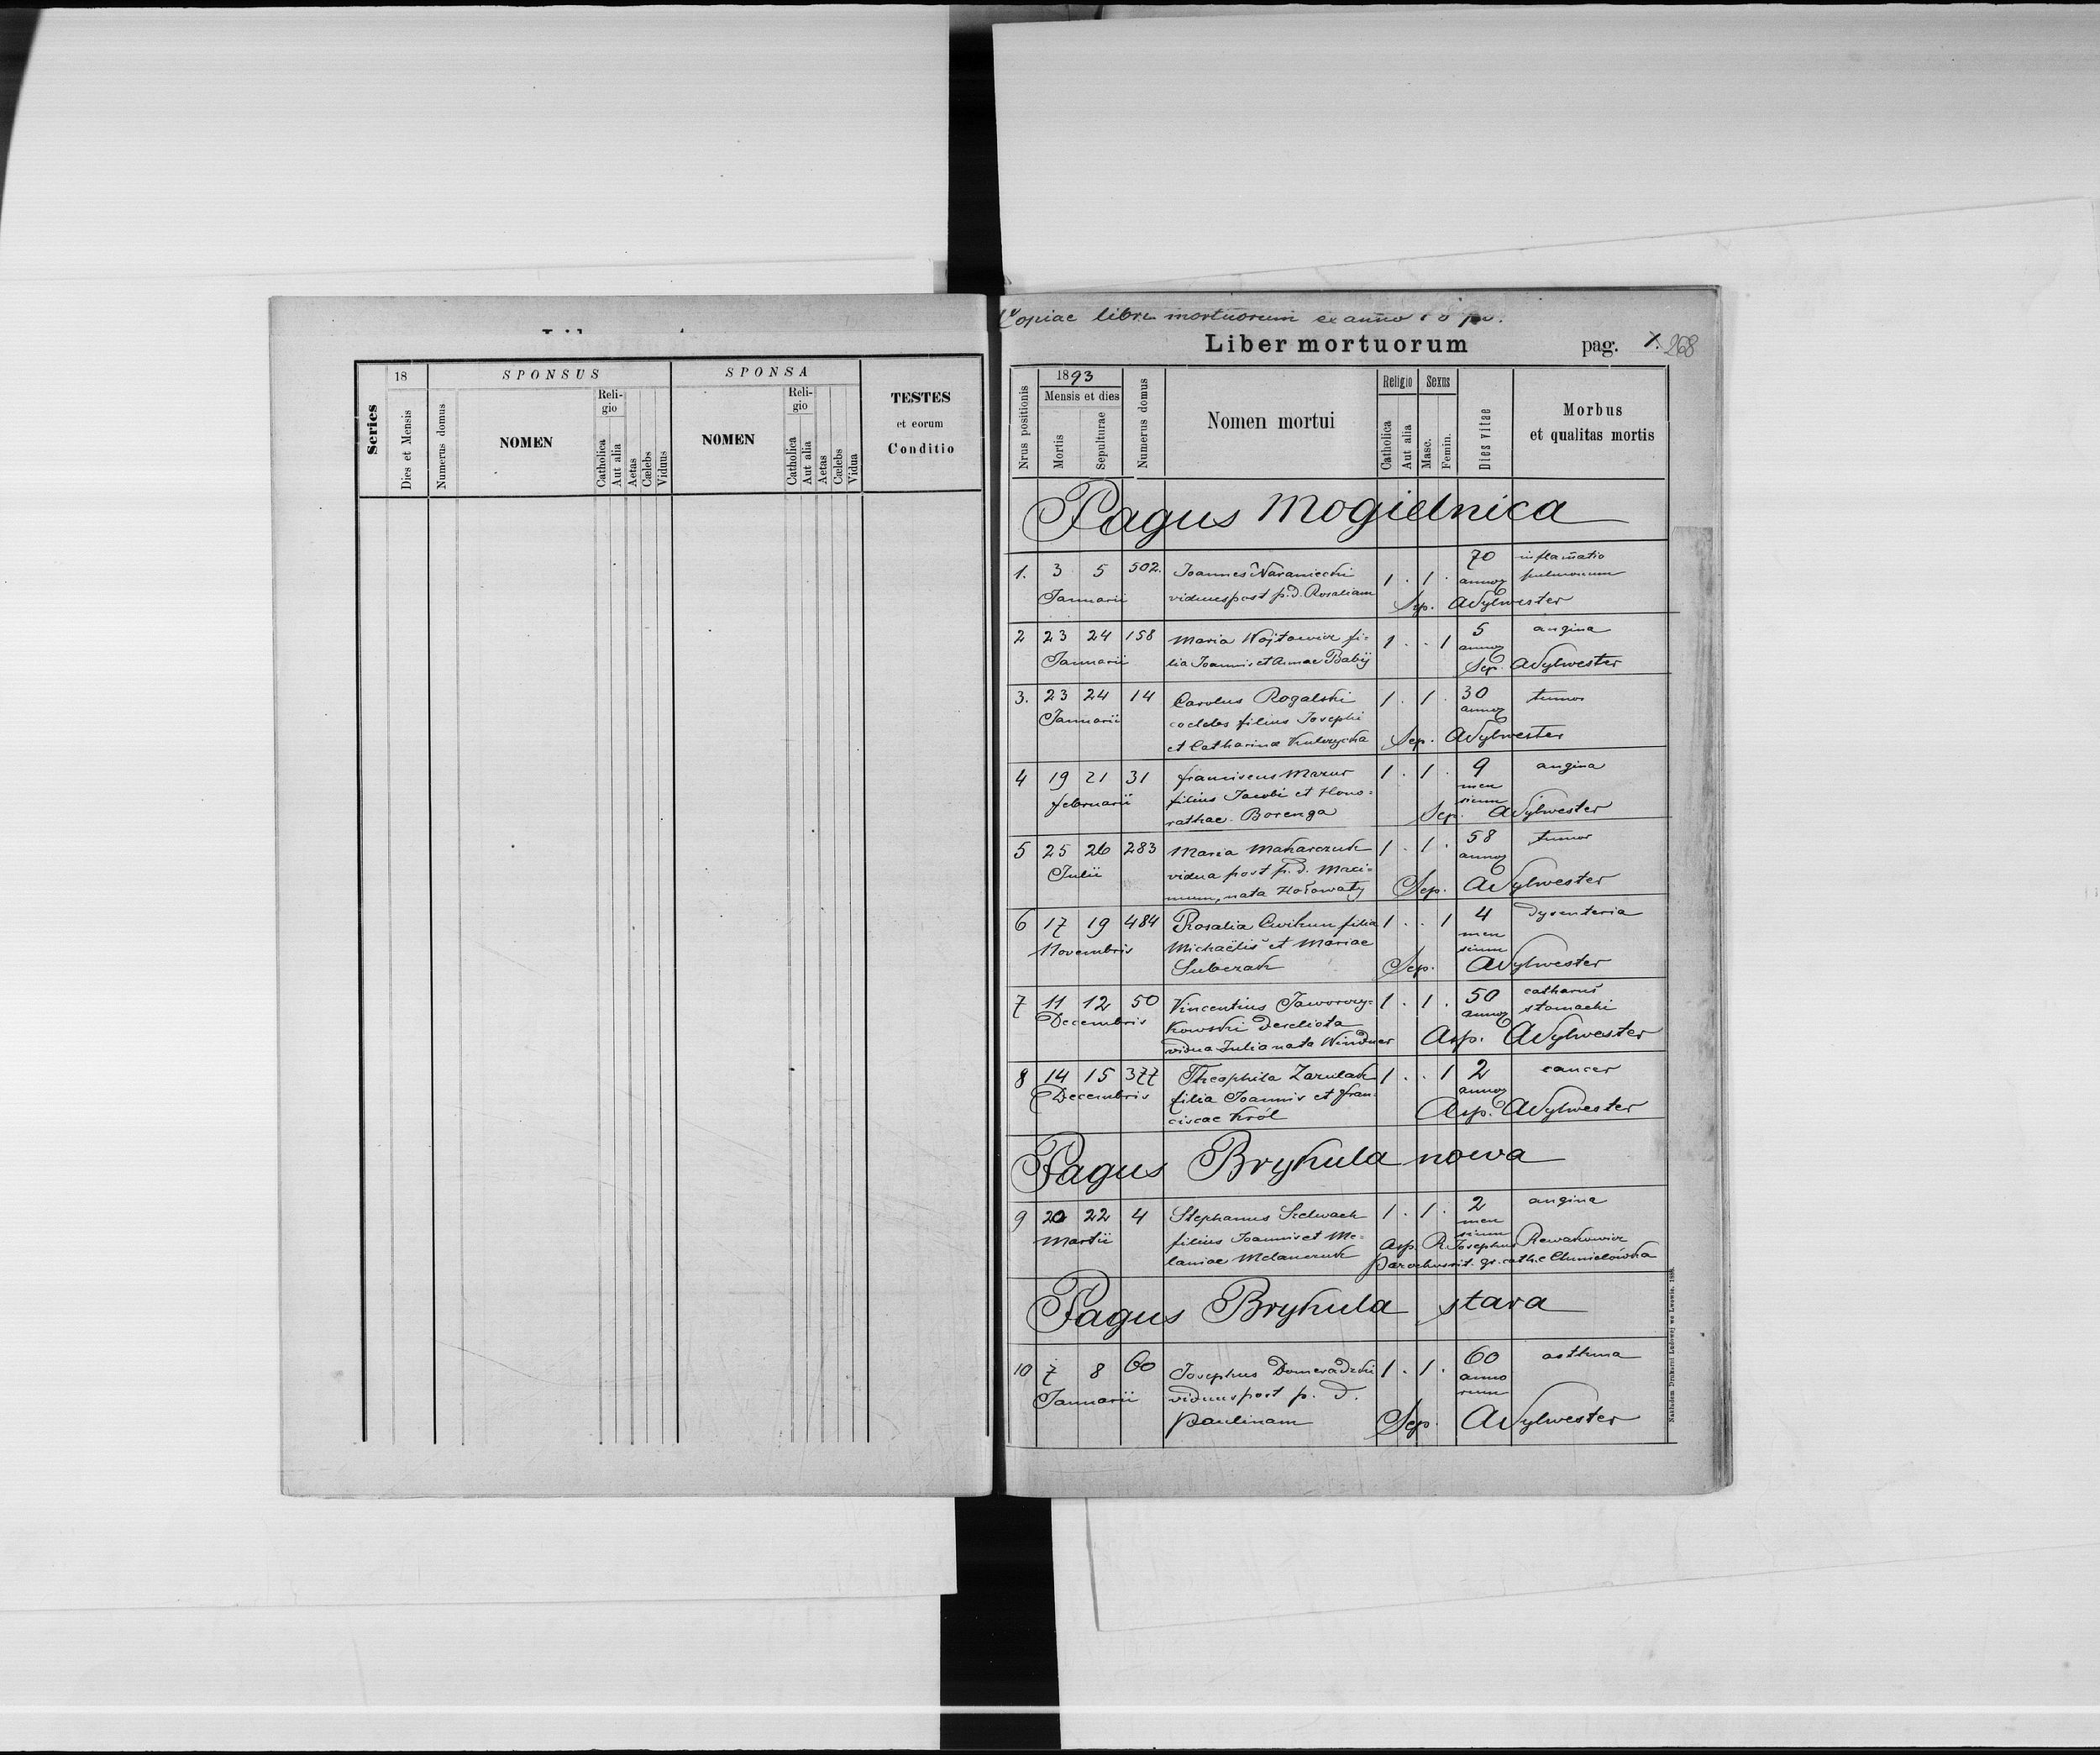 18
SPONSUS
SPONSA
Series
Dies et Mensis
Numerus domus
NOMEN
Reli-
gio
Catholica
Aut alia
Aetas
Cælebs
Viduus
NOMEN
Reli-
gio
Catholica
Aut alia
Aetas
Cælebs
Vidua
TESTES
et eorum
Conditio
Copiae libri mortuorum ex anno
Liber mortuorum
pag. 268
Nrus positionis
1893
Mensis et dies
Mortis
Sepulturae
Numerus domus
Nomen mortui
Religio
Catholica
Aut alia
Sexus
Masc.
Femin.
Dies vitae
Morbus
et qualitas mortis
Pagus Mogielnica
1. 3 5 502. Joannes Naraniecki 1 . 1 . 70 inflamatio
Januarii viduus post p. d. Rosaliam annor pulmonum
Sep. A Sylwester
2 23 24 158 Maria Wojtowicz fi= 1 . . 1 5 angina
Januarii lia Joannis et Annae Babij annor
Sep. A Sylwester
3. 23 24 14 Carolus Rogalski 1 . 1 . 30 tumor
Januarii coelebs filius Josephi annor
et Catharinæ Kulczycka Sep. A Sylwester
4 19 21 31 Franciscus Mazur 1 . 1 . 9 angina
Februarii filius Jacobi et Hono= men
rathae Borenga sium
Sep. A Sylwester
5 25 26 283 Maria Makarczuk 1 . 1 . 58 tumor
Julii vidua post p. d. Maxi= annor
mum, nata Hołowaty Sep. A Sylwester
6 17 19 484 Rosalia Cwikun filia 1 . . 1 4 dysenteria
Novembris Michaëlis et Mariae men
sium
Suberak Sep. A Sylwester
7 11 12 50 Vincentius Jaworczy= 1 . 1 . 50 catharus
Decembris kowski derelicta annor stomachi
vidua Julia nata Windner Asp. A Sylwester
8 14 15 377 Theophila Zazulak 1 . . 1 2 cancer
Decembris filia Joannis et Fran= annor
ciscae Król Asp. A Sylwester
Pagus Brykula nowa
9 20 22 4 Stephanus Szelwach 1 . 1 . 2 angina
Martii filius Joannis et Me= men
sium
laniae Melanczuk Asp. R. Josephus Rewakowicz
Parochus rit. gr. cath. e Chmielówka
Pagus Brykula stara
10 7 8 60 Josephus Domeradzki 1 . 1 . 60 asthma
Januarii viduus post p. d. anno
rum
Paulinam Sep. A Sylwester
Nakładem Drukarni Ludowej we Lwowie.